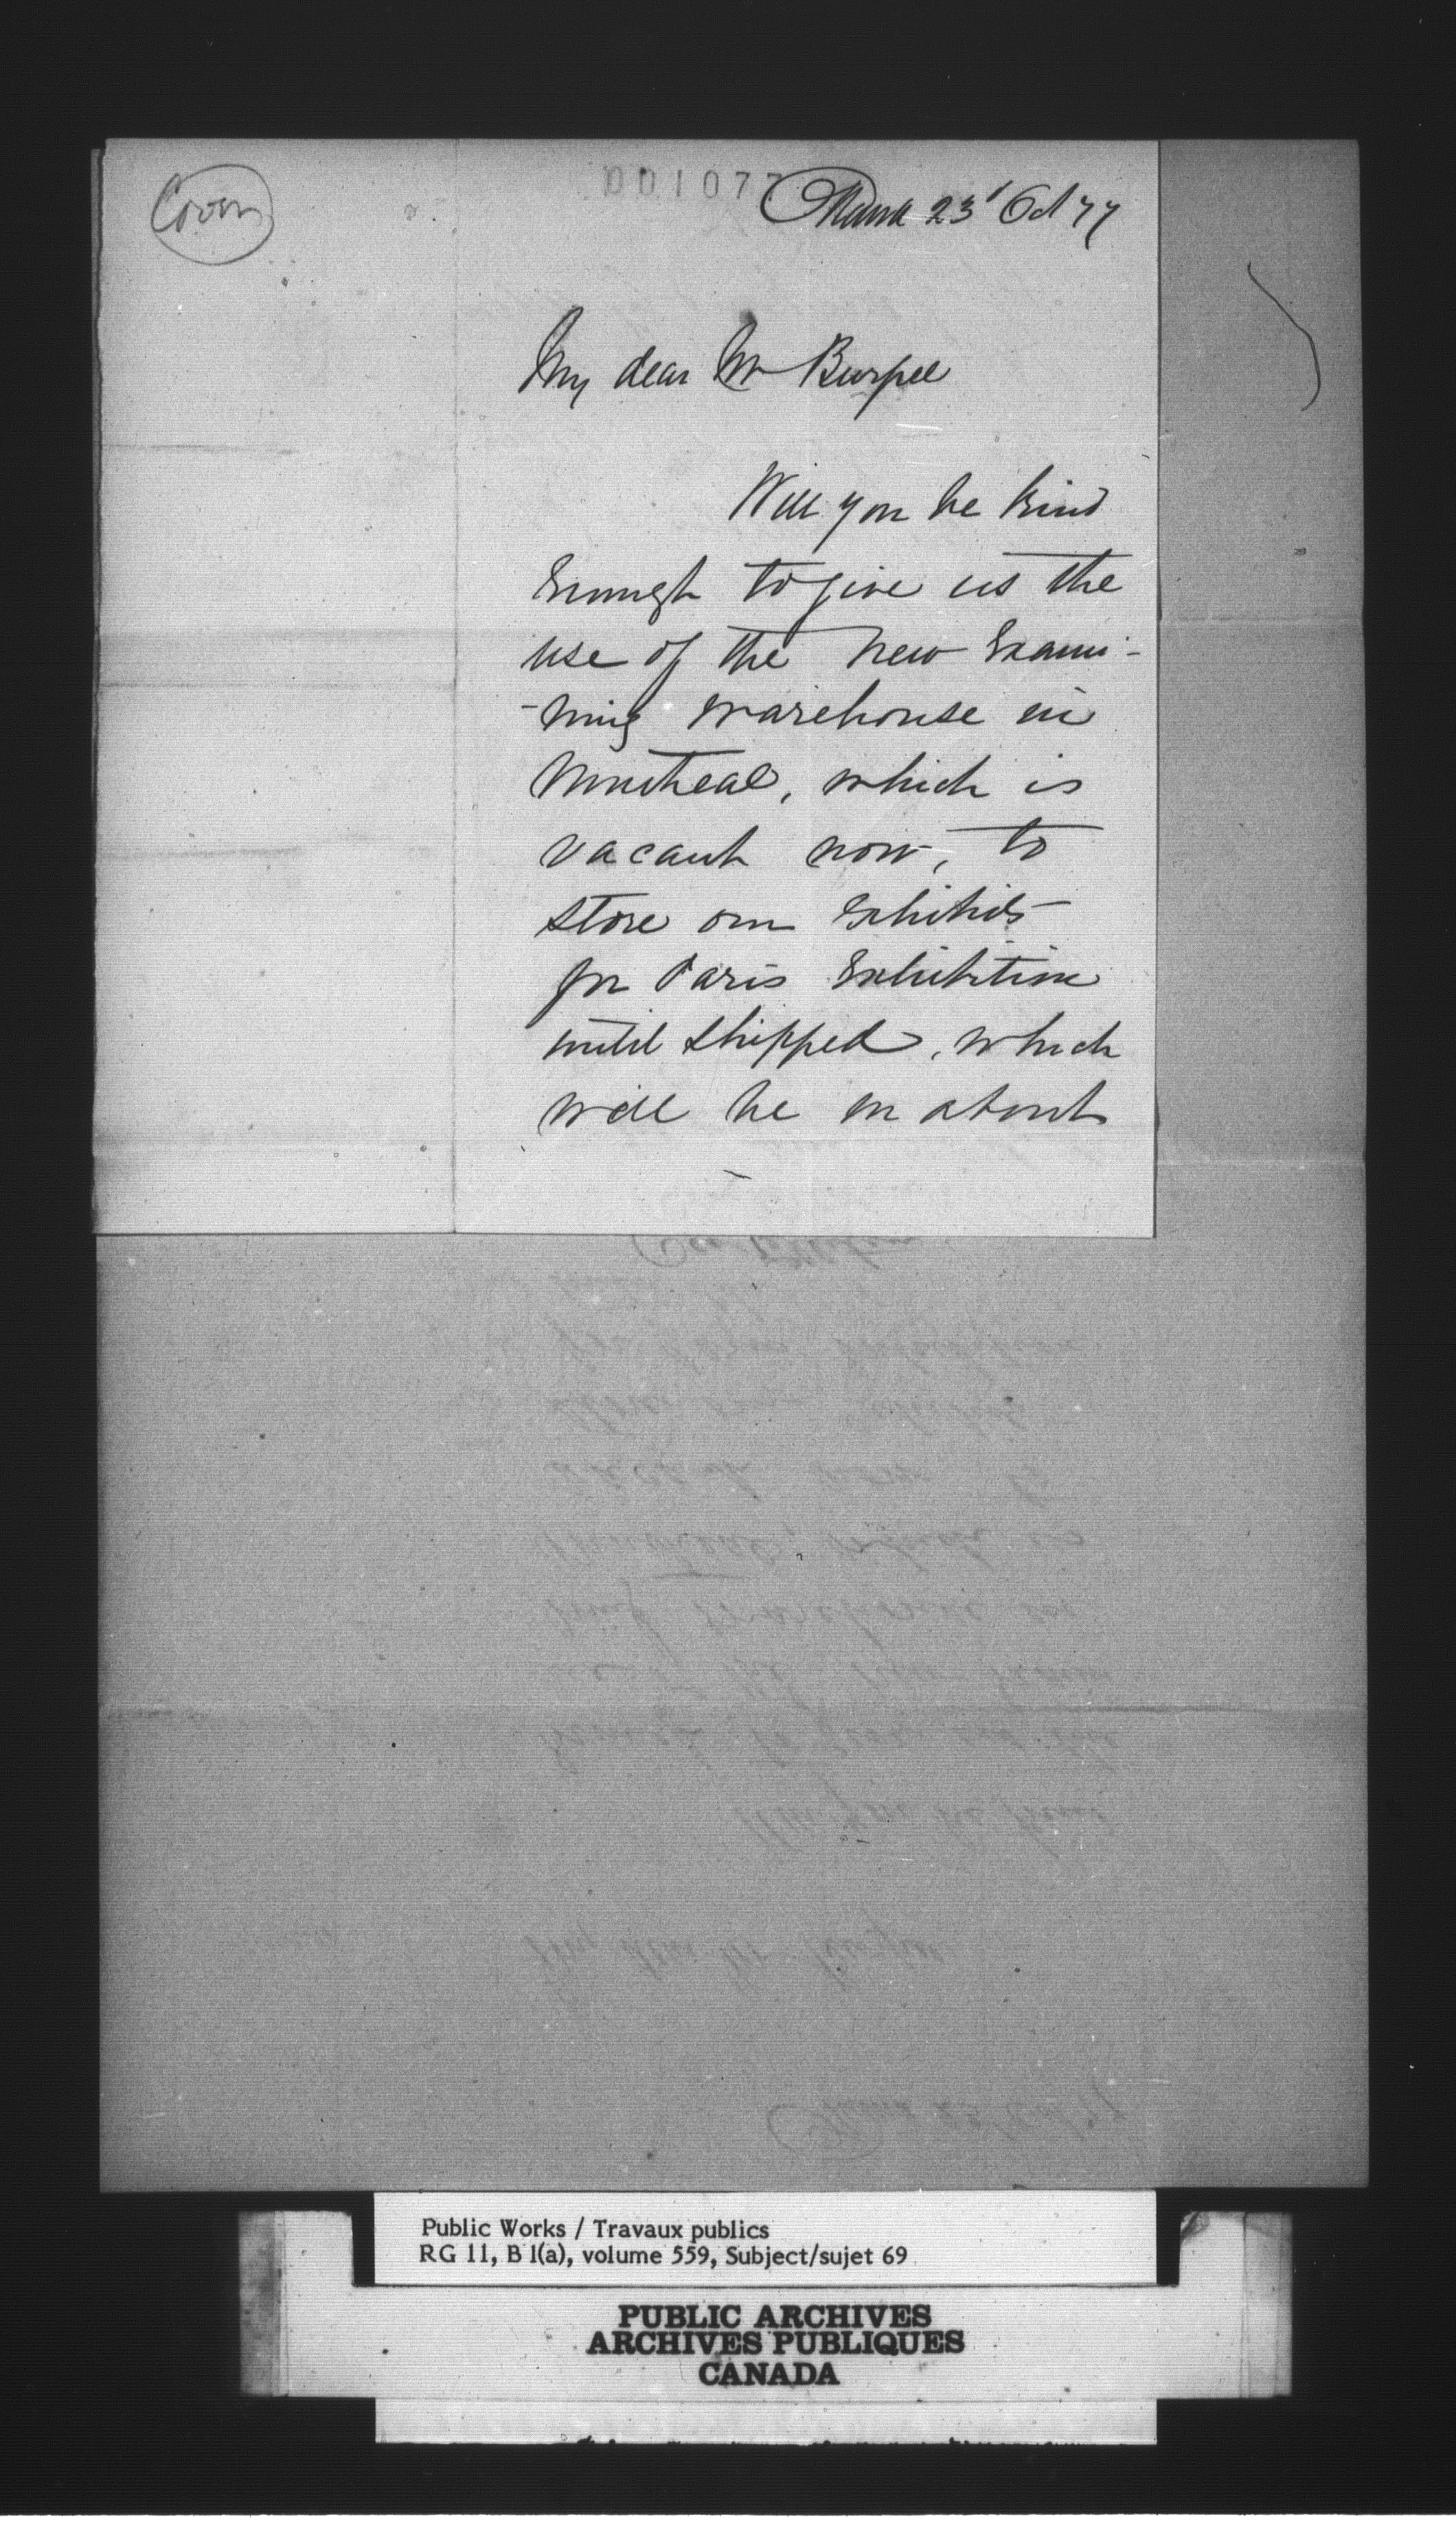 Cover
001077
Ottawa 23' Oct 77
My dear Mr Burpee
Will you be kind
enough to give us the
use of the new Exami-
-ning warehouse in
Montreal, which is
vacant now, to
store our exhibits
for Paris Exhibition
until shipped, which
will be in about
Public Works / Travaux publics
RG 11, B 1(a), volume 559, Subject/sujet 69
PUBLIC ARCHIVES
ARCHIVES PUBLIQUES
CANADA